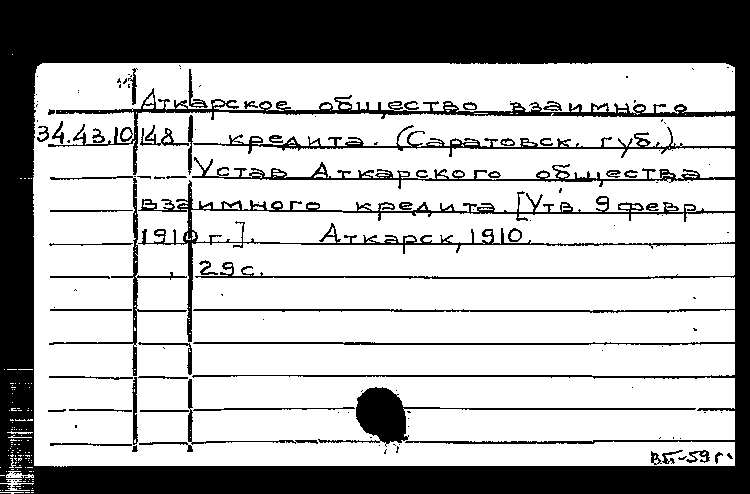 Аткарское общество взаимного
34.43.10 148 кредита. (Саратовск. губ.).
Устав Аткарского общества
взаимного кредита. [Утв. 9 февр.
1910 г.]. Аткарск, 1910.
, 29 с.
ВБ-59 г.